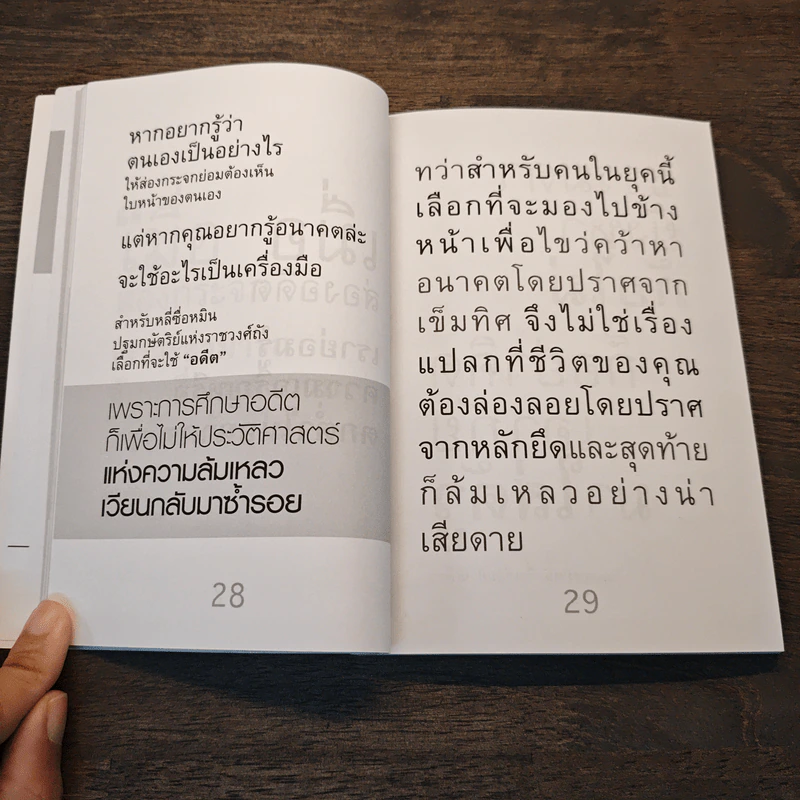 หากอยากรู้ว่า
ตนเองเป็นอย่างไร
ให้ส่องกระจกย่อมต้องเห็น
ใบหน้าของตนเอง
แต่หากคุณอยากรู้อนาคตล่ะ
จะใช้อะไรเป็นเครื่องมือ
สำหรับหลี่ซื่อหมิน
ปฐมกษัตริย์แห่งราชวงศ์ถัง
เลือกที่จะใช้ “อดีต”
เพราะการศึกษาอดีต
ก็เพื่อไม่ให้ประวัติศาสตร์
แห่งความล้มเหลว
เวียนกลับมาซ้ำรอย
28
ทว่าสำหรับคนในยุคนี้
เลือกที่จะมองไปข้าง
หน้าเพื่อไขว่คว้าหา
อนาคตโดยปราศจาก
เข็มทิศ จึงไม่ใช่เรื่อง
แปลกที่ชีวิตของคุณ
ต้องล่องลอยโดยปราศ
จากหลักยึดและสุดท้าย
ก็ล้มเหลวอย่างน่า
เสียดาย
29